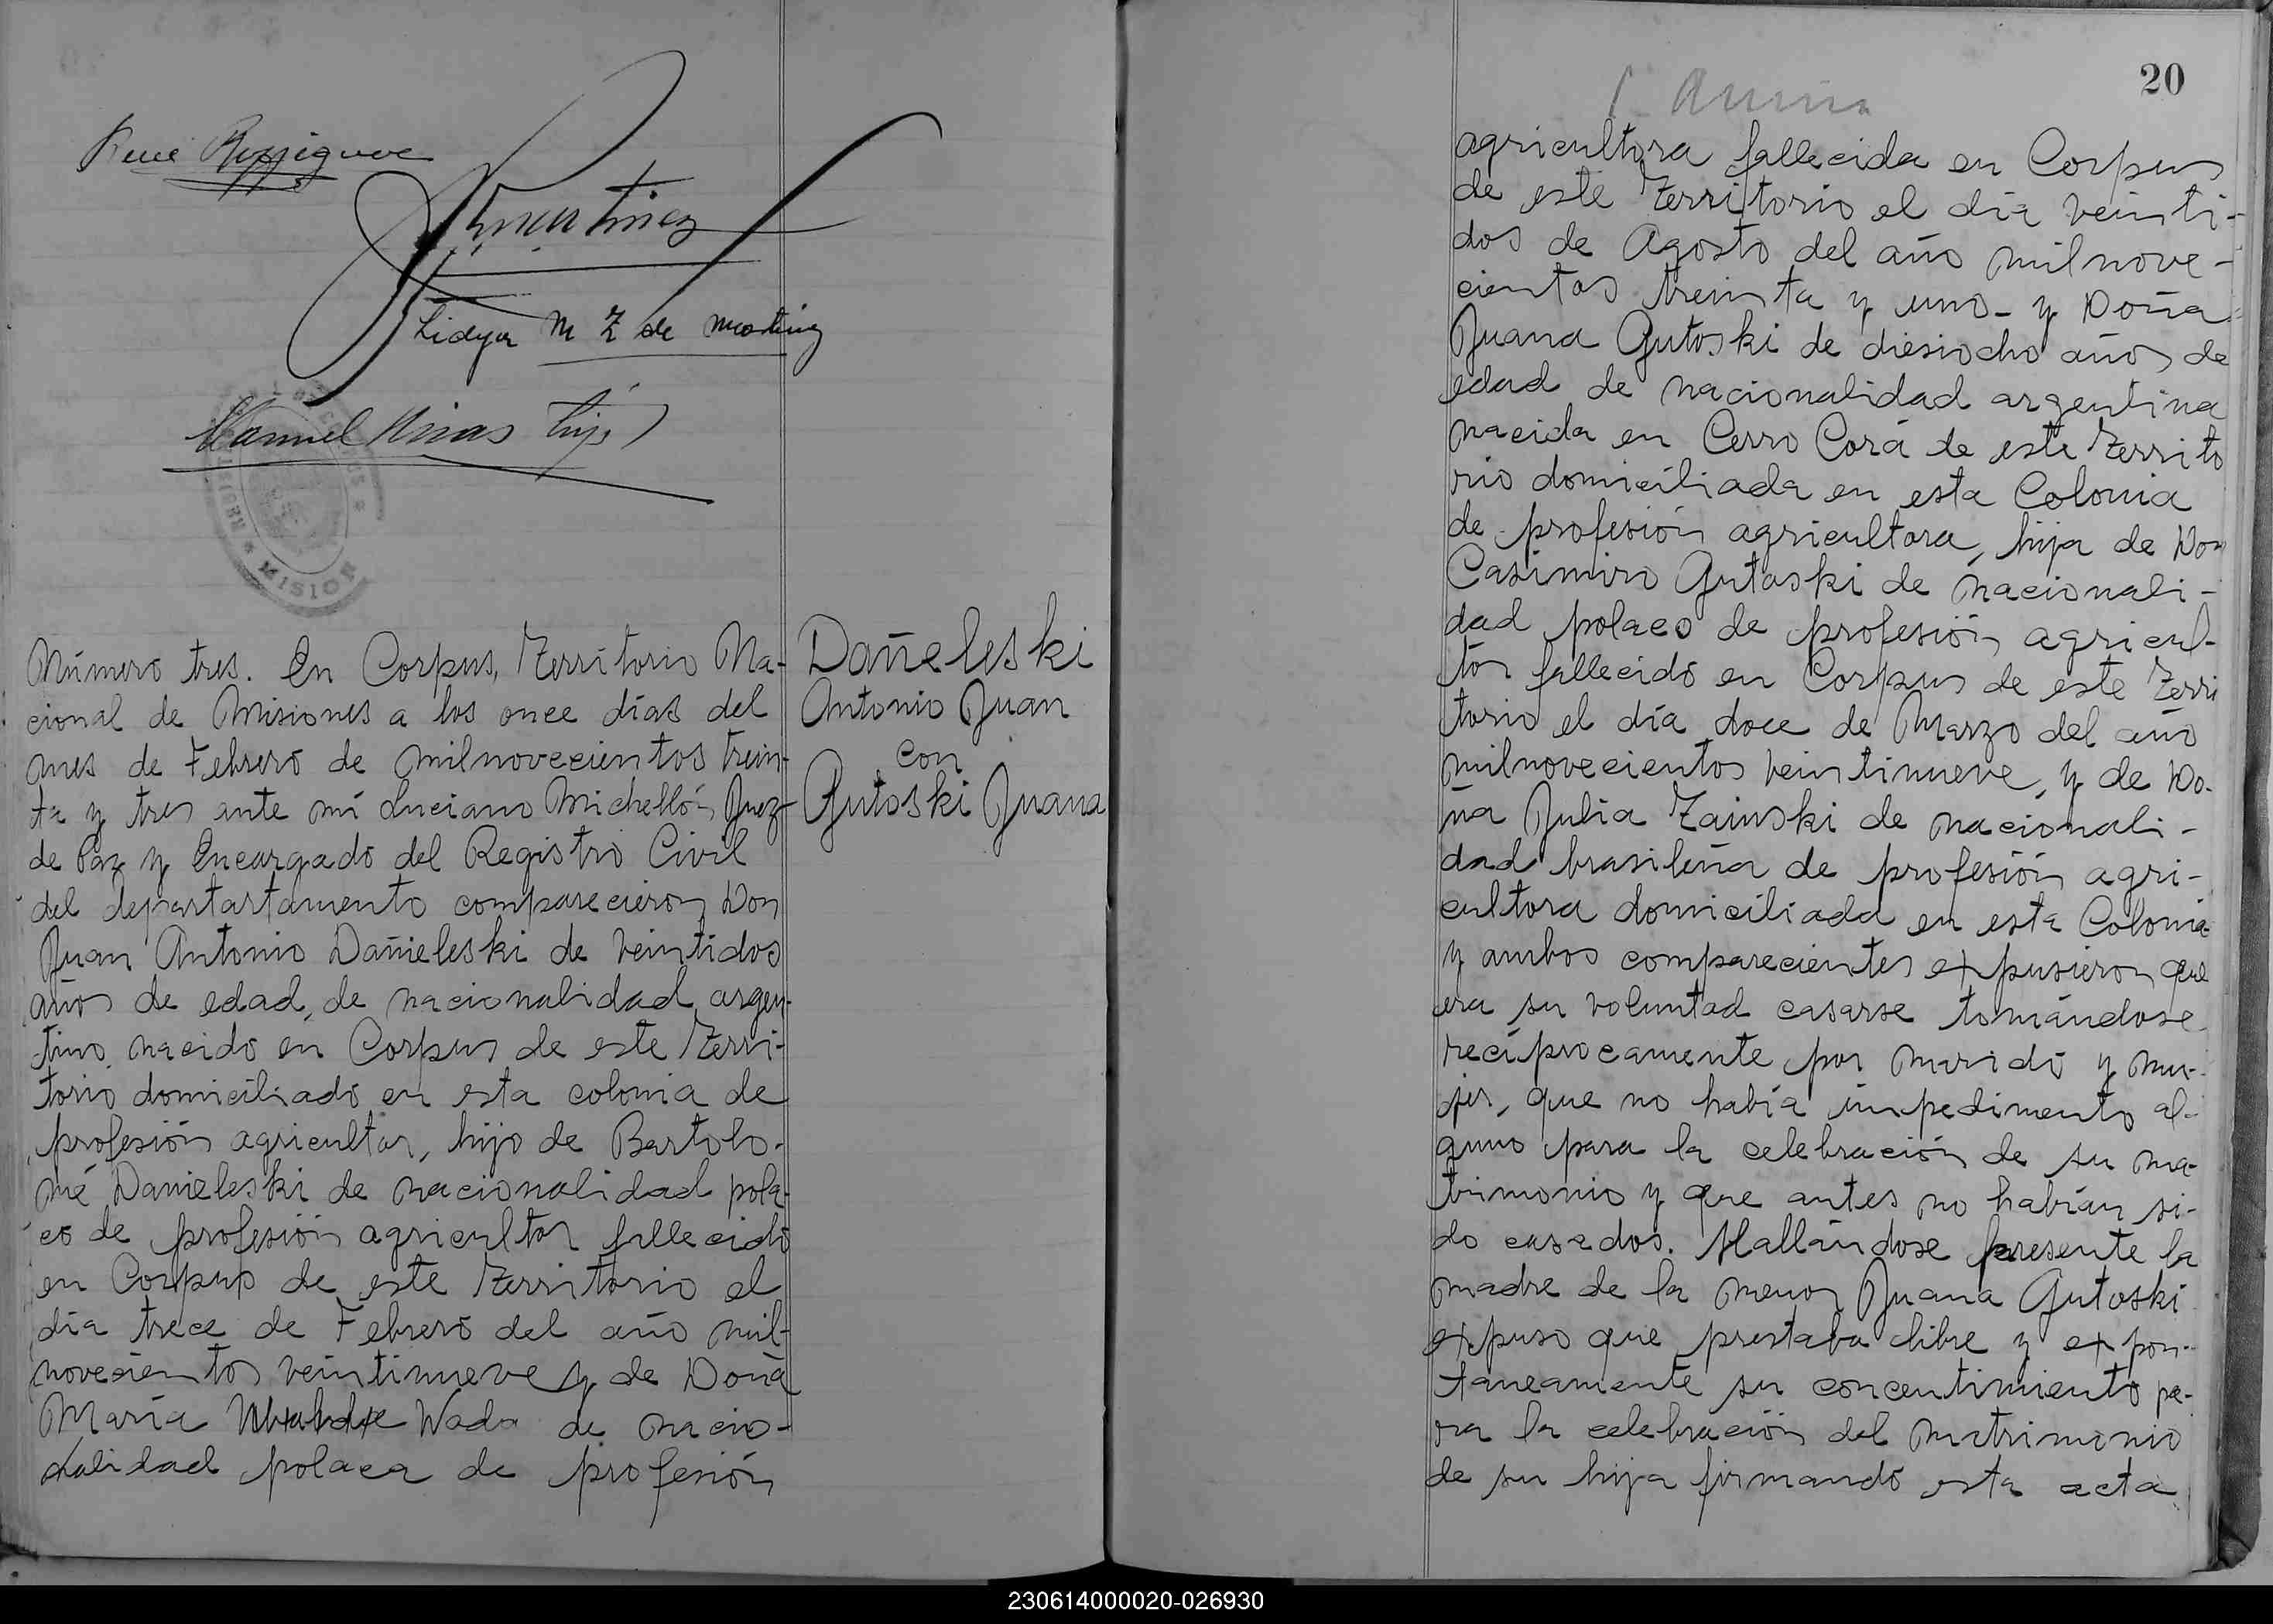 René Rossignol
Martinez
Lidya M Z de Martinez
Manuel Rivas hijo
MISION
Número tres. En Corpus, Territorio Na-
cional de Misiones a los once días del
mes de Febrero de milnovecientos trein-
ta y tres ante mí Luciano Michellón Juez
de Paz y Encargado del Registro Civil
del departartamento comparecieron Don
Juan Antonio Dañieleski de veintidos
años de edad, de nacionalidad argen-
tino nacido en Corpus de este Terri-
torio domiciliado en esta colonia de
profesión agricultor, hijo de Bartolo-
mé Danieleski de nacionalidad pola-
co de profesión agricultor fallecido
en Corpus de este Territorio el
día trece de Febrero del año mil-
novecientos veintinueve y de Doña
María Wada de nacio-
nalidad polaca de profesión
Dañeleski
Antonio Juan
con
Gutoski Juana
20
agricultora fallecida en Corpus
de este Territorio el día veinti-
dos de Agosto del año milnove-
cientos treinta y uno- y Doña
Juana Gutoski de diesiocho años de
edad de nacionalidad argentina
nacida en Cerro Corá de este Territo
rio domiciliada en esta Colonia
de profesión agricultora, hija de Don
Casimiro Gutoski de nacionali-
dad polaco de profesión agricul-
tor fallecido en Corpus de este Terri
torio el día doce de Marzo del año
milnovecientos veintinueve, y de Do-
ña Julia Zainski de nacionali-
dad brasileña de profesión agri-
cultora domiciliada en esta Colonia
y ambos comparecientes expusieron que
era su voluntad casarse tomándose
recíprocamente por marido y mu-
jer, que no había impedimento al-
guno para la celebración de su ma-
trimonio y que antes no habían si-
do casados. Hallándose presente la
madre de la menor Juana Gutoski
expuso que prestaba libre y expon-
taneamente su concentimiento pa-
ra la celebración del matrimonio
de su hija firmando esta acta
230614000020-026930